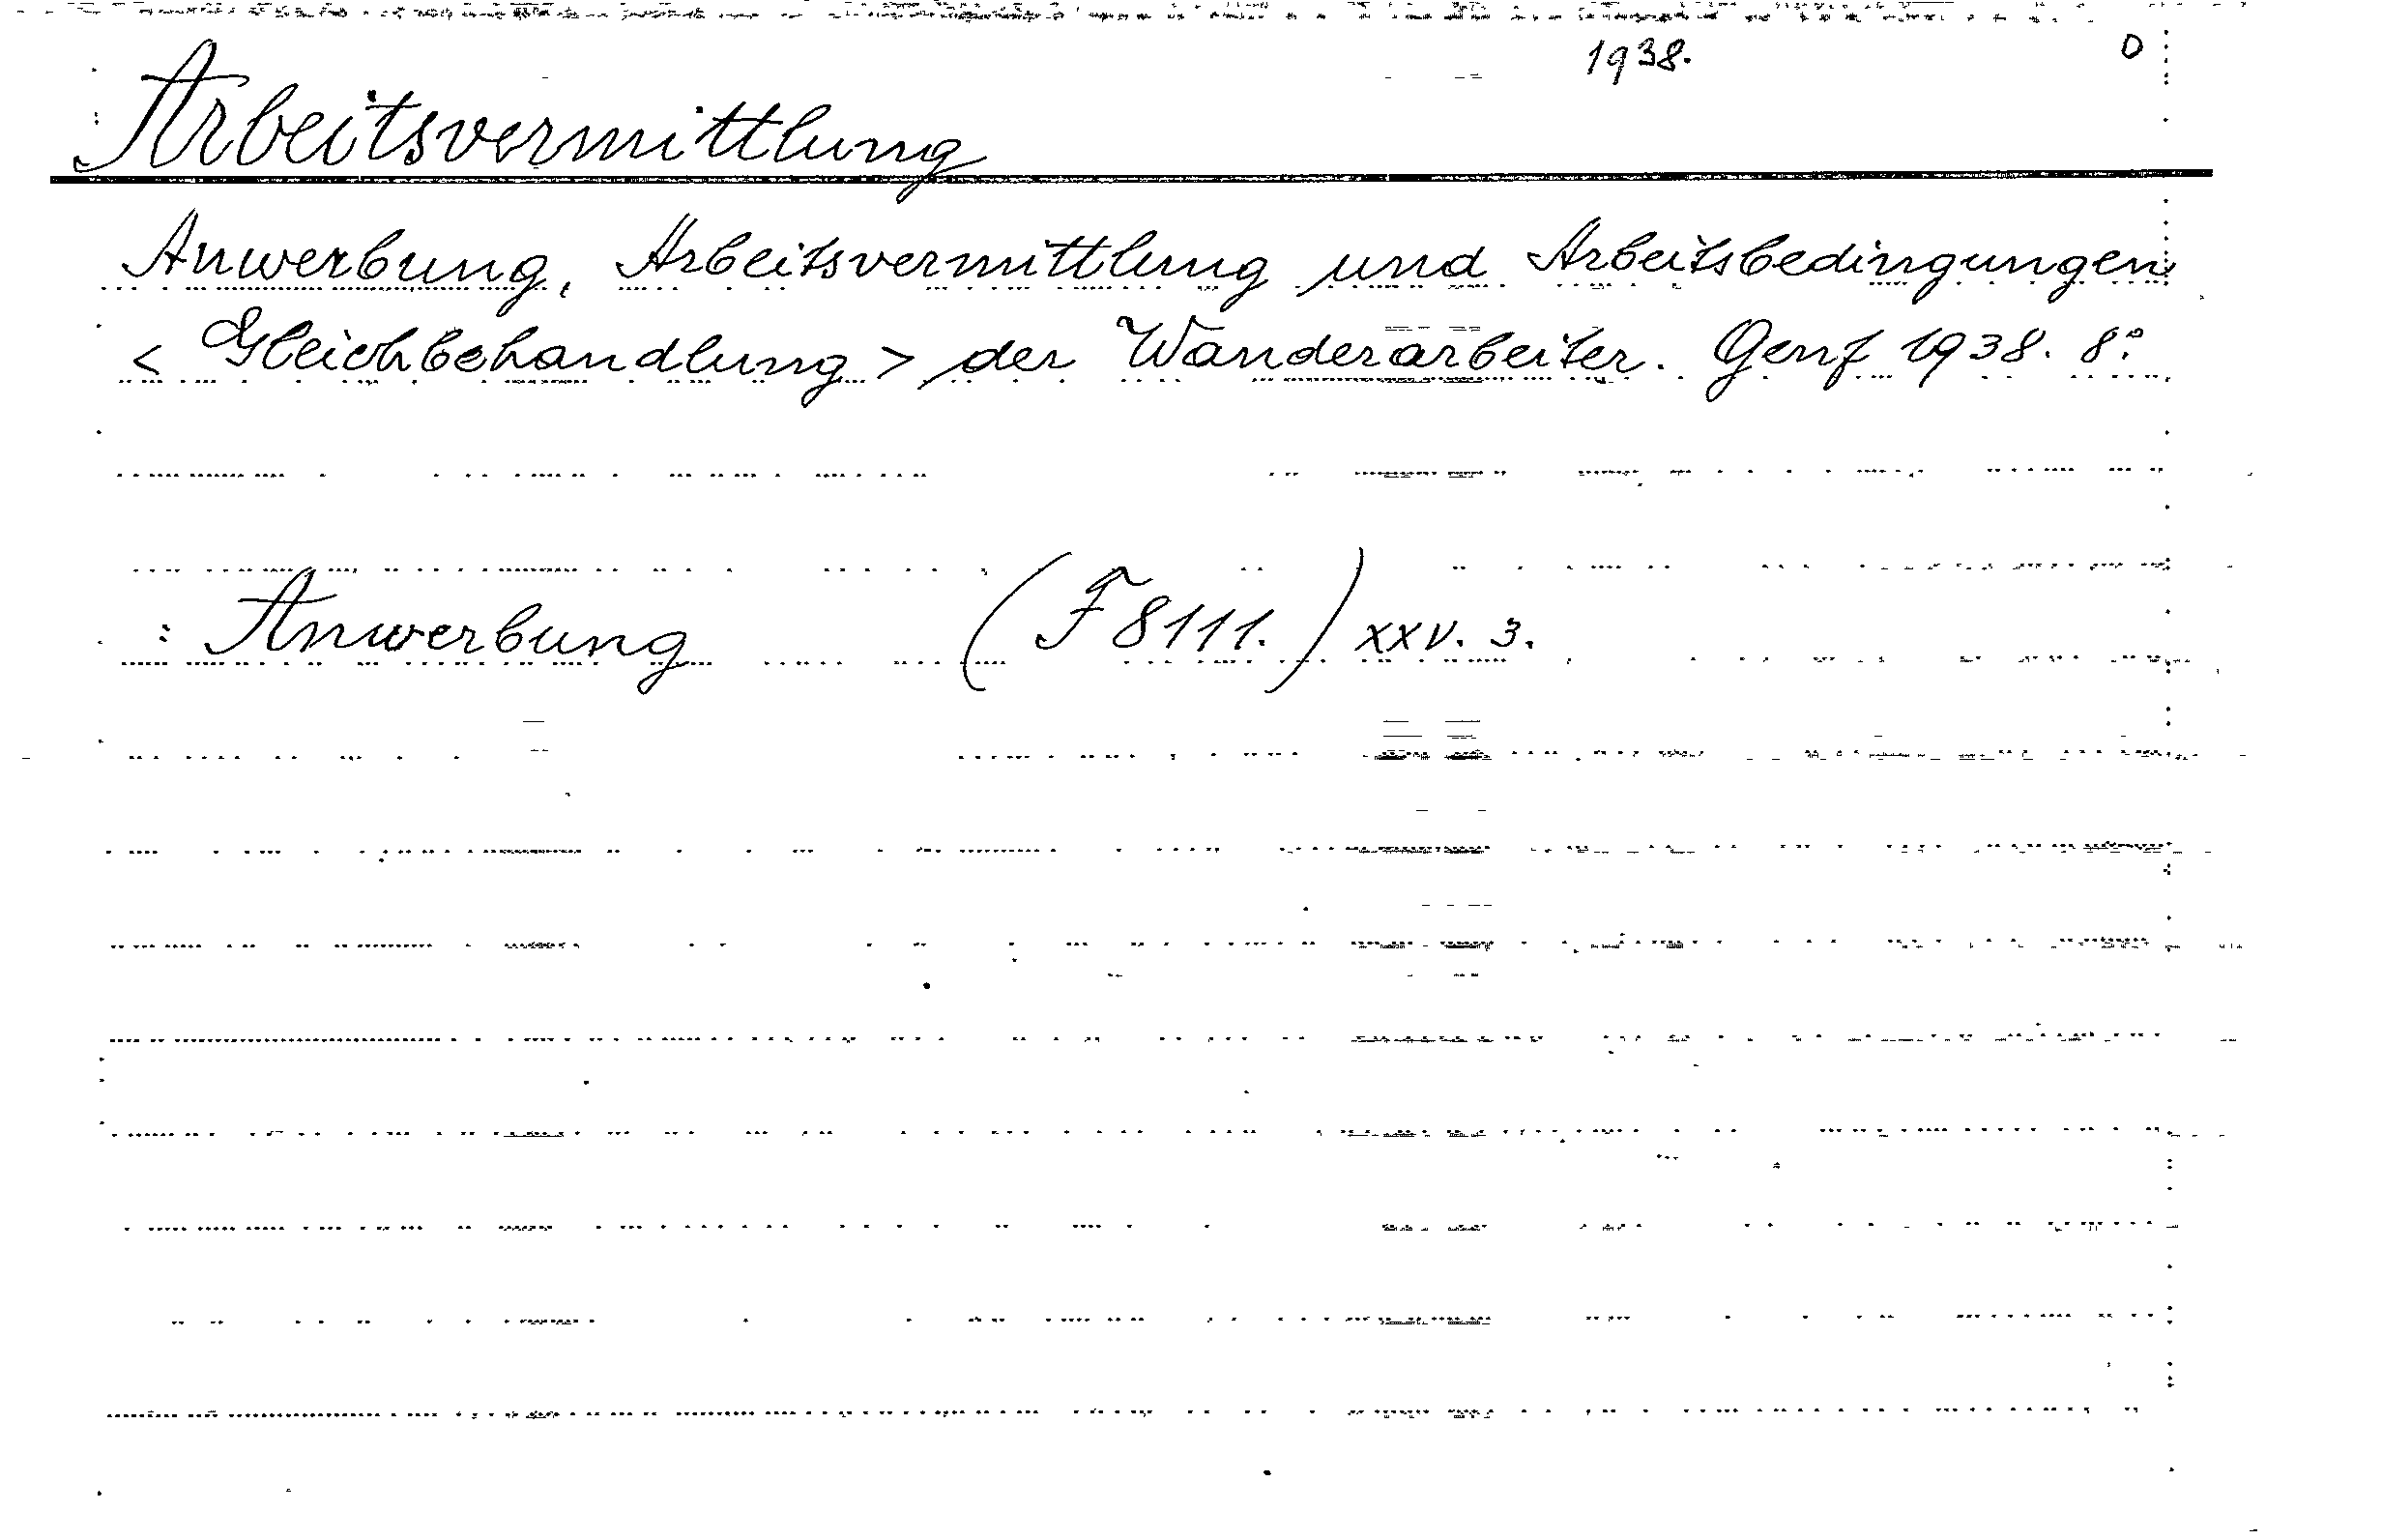 1938. 0
Arbeitsvermittlung
Anwerbung, Arbeitsvermittlung und Arbeitsbedingungen
< Gleichbehandlung > der Wanderarbeiter. Genf 1938. 8°.
: Anwerbung (F 8111.) XXV. 3.